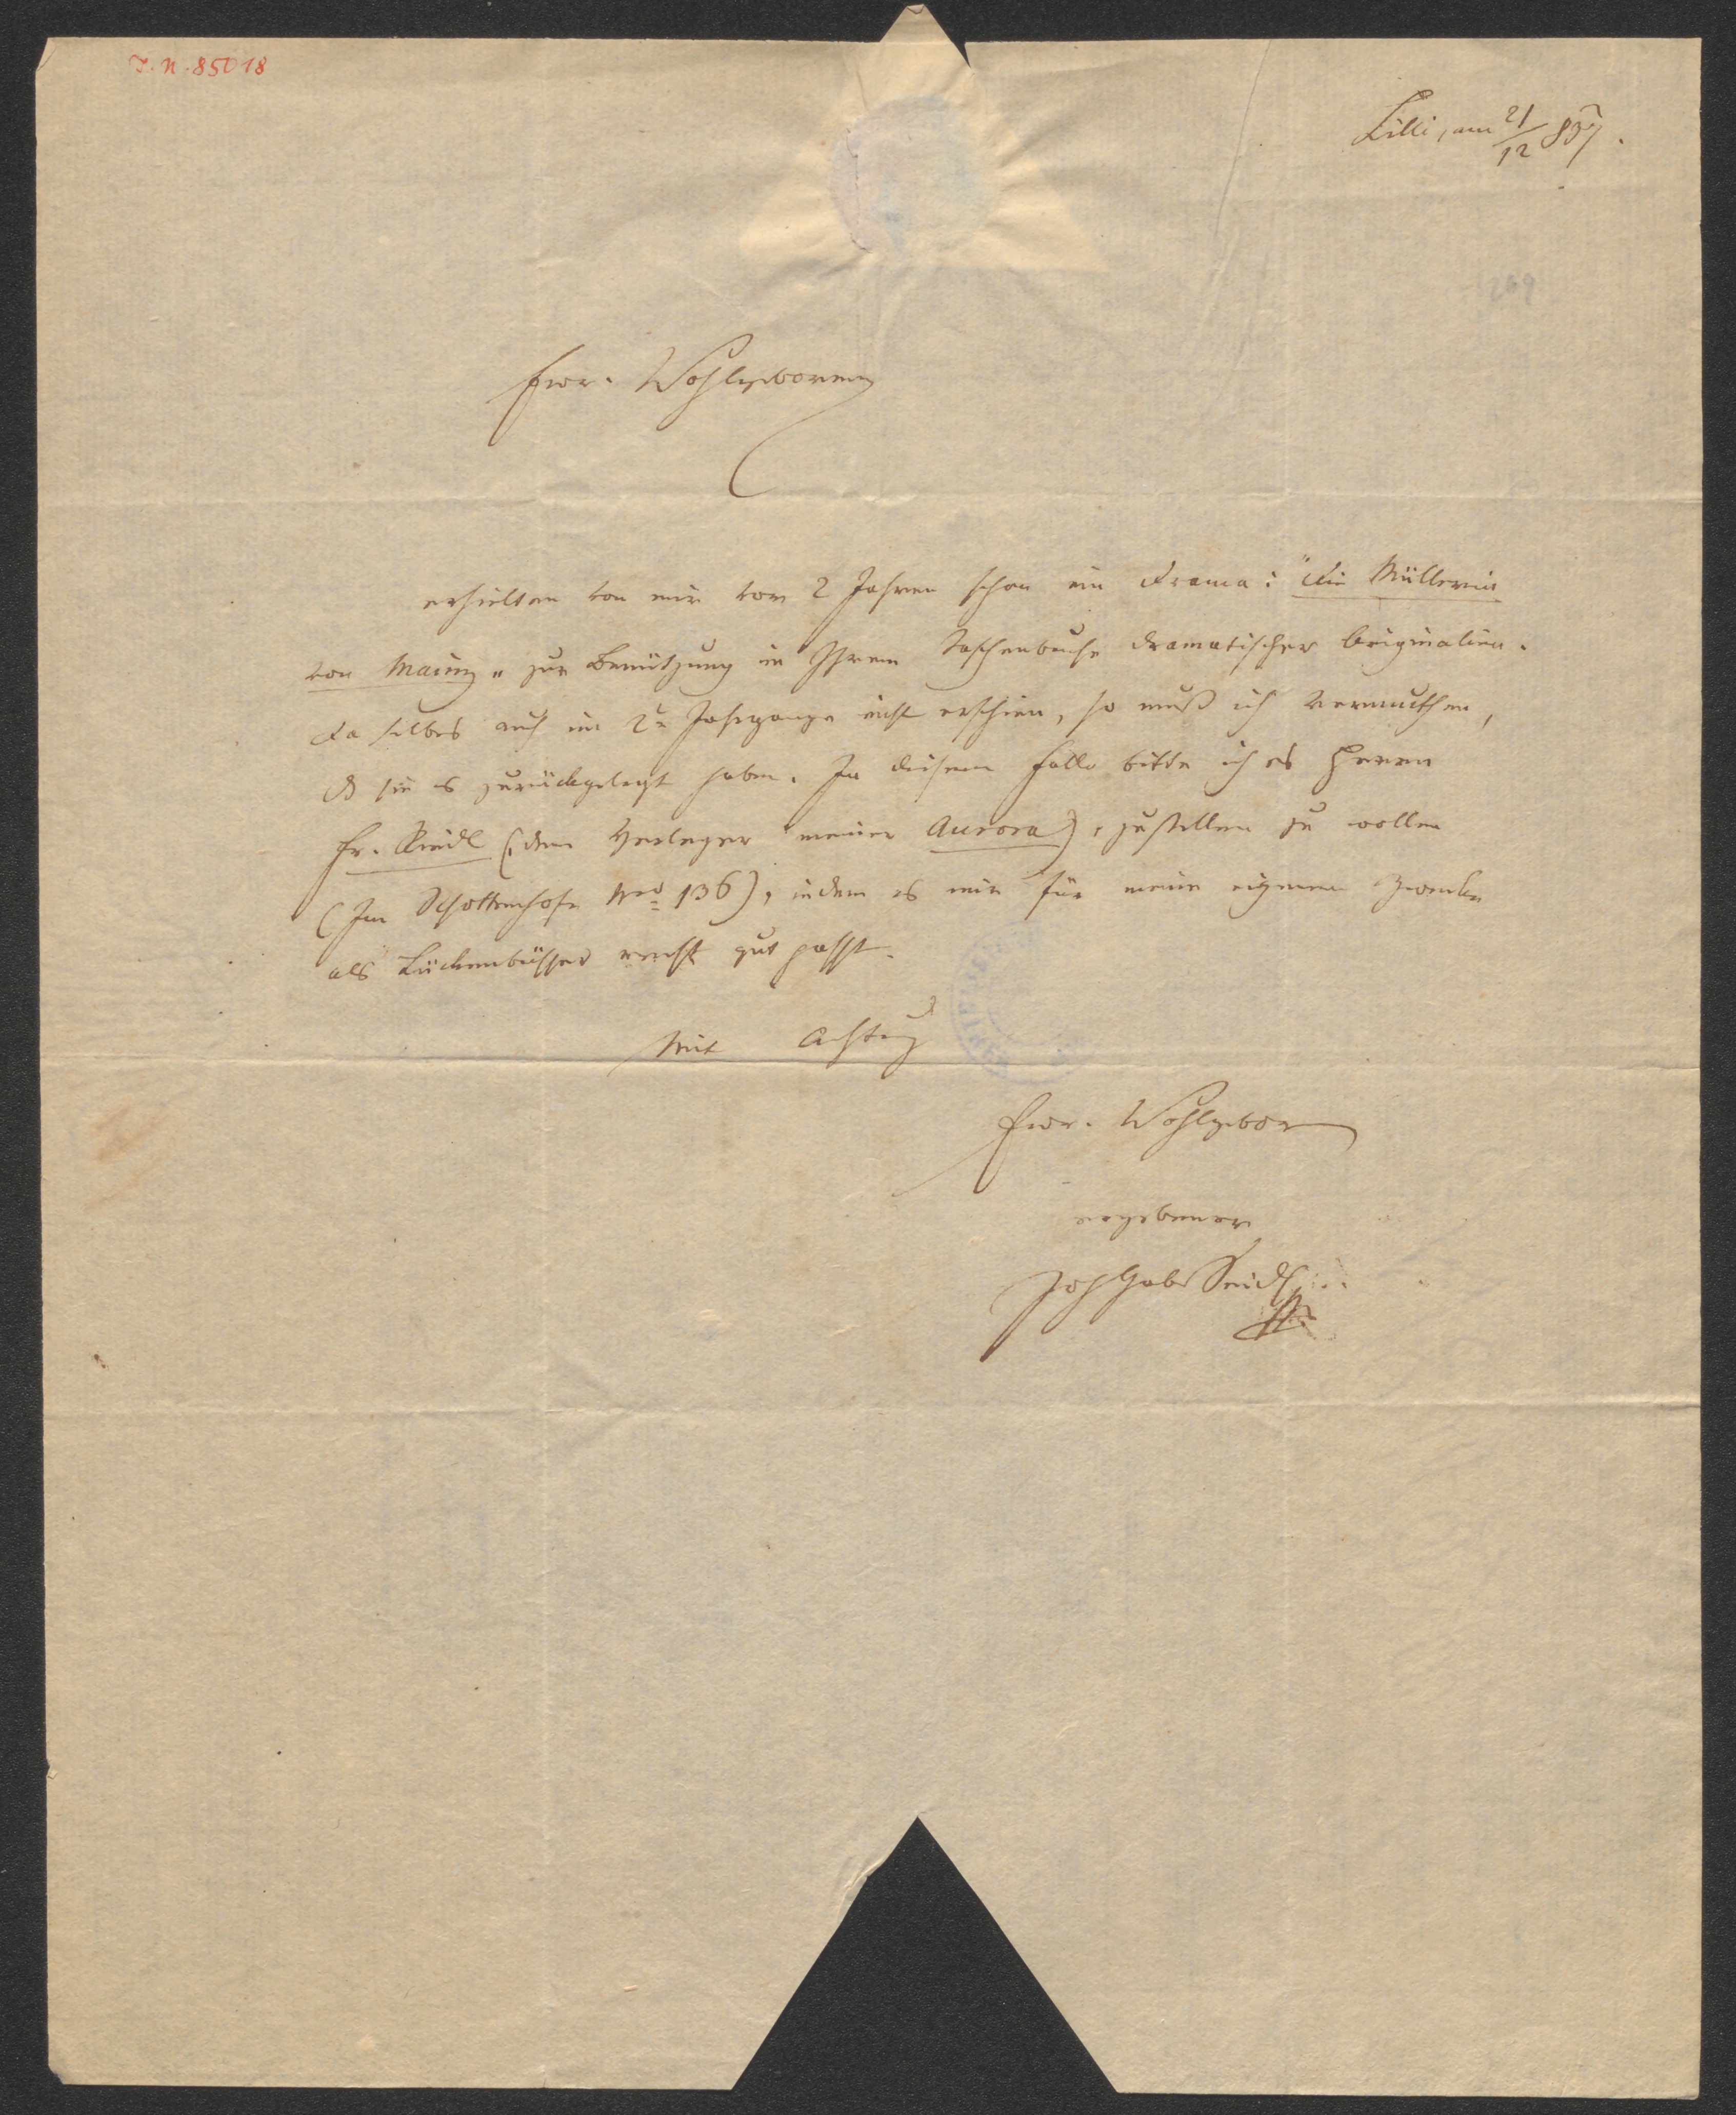 I. N. 85018
Cilli, am 21/12 837.
269
Euer. Wohlgeboren
erhielten von mir vor 2 Jahren schon ein Drama: "Die Müllerin
von Mainz" zur Benützung in Ihrem Taschenbuche dramatischer Originalien.
Da selbes auch im 2n Jahrgange nicht erschien, so muß ich vermuthen,
dß sie es zurückgelegt haben. In diesem Falle bitte ich es Herrn
Fr. Riedl (dem Verleger meiner Aurora), zustellen zu wollen
(Im Schottenhofe Nro 136), indem es mir für meine eigenen Zwecke
als Lückenbüsser recht gut passt.
Mit Achtung
Euer. Wohlgebor
ergebener
Joh Gab Seidl